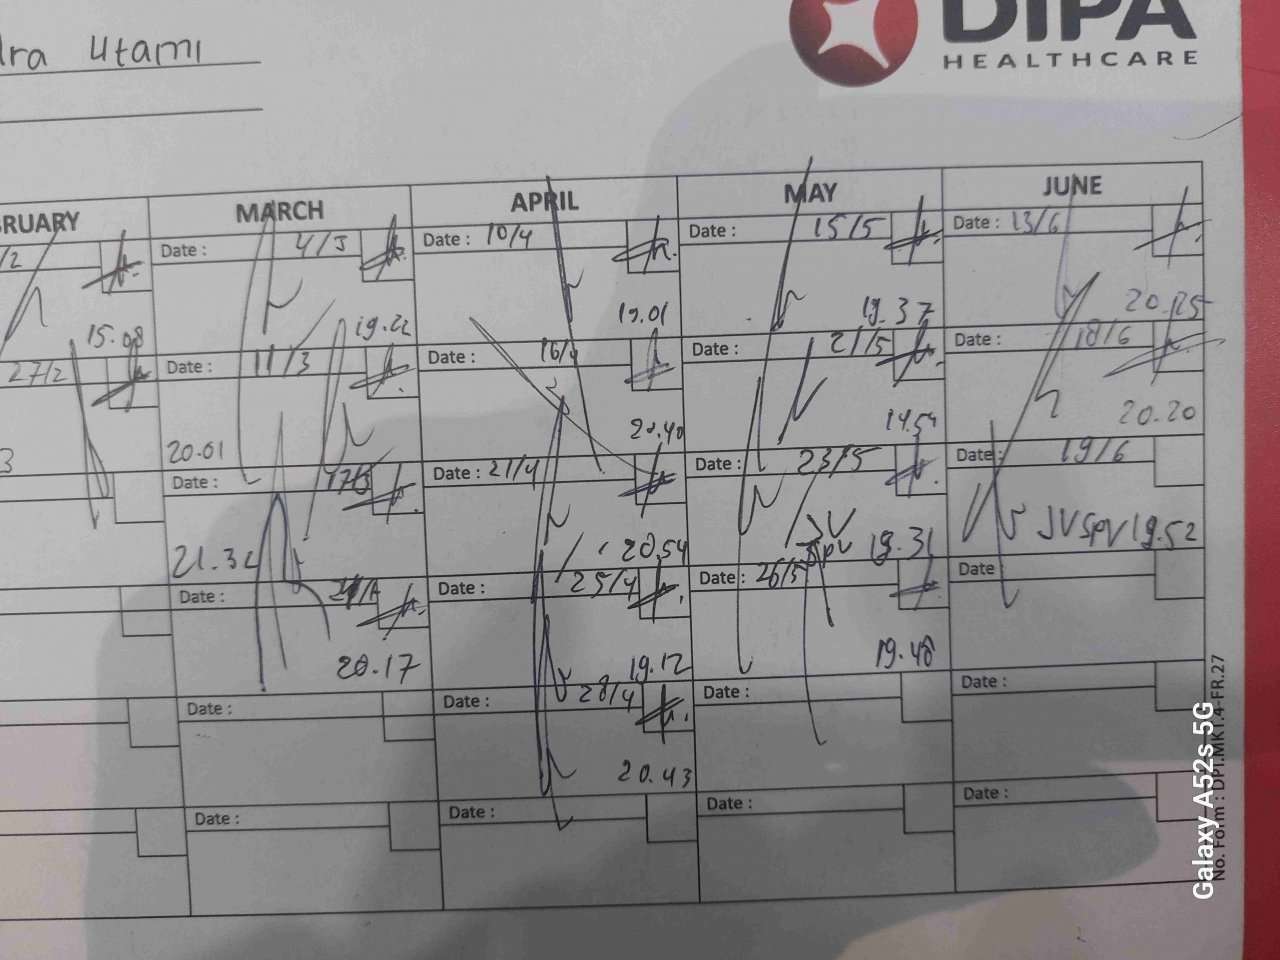 Utami
DIPA
HEALTHCARE
BRUARY MARCH APRIL MAY JUNE
/2 Date : 4/3 Date : 10/4 Date : 15/5 Date : 13/6
15.08 19.22 19.01 19.37 20.25
27/2 Date : 11/3 Date : 16/4 Date : 21/5 Date : 18/6
3 20.01 20.40 14.54 20.20
Date : 17/3 Date : 21/4 Date : 23/5 Date : 19/6
21.32 20.54 JV Spv 19.31 JV SPV 19.52
Date : Date : 25/4 Date : 26/5 Date
20.17 19.12 19.48
Date : Date : 28/4 Date : Date :
20.43
Date : Date : Date : Date :
No. Form : DPI.MKT.4-FR.27
Galaxy A52s 5G